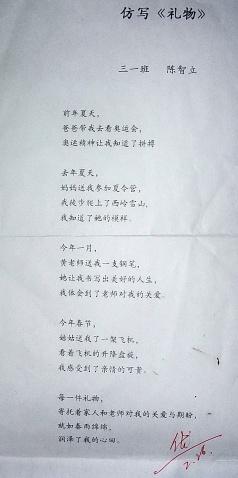 仿写《礼物》
三一班 陈智立
前年夏天，
爸爸带我去看奥运会，
奥运精神让我知道了拼搏
去年夏天，
妈妈送我参加夏令营，
我徒步爬上了西岭雪山，
我知道了她的模样。
今年一月，
黄老师送我一支钢笔，
她让我书写出美好的人生，
我体会到了老师对我的关爱。
今年春节，
姑姑送我了一架飞机，
看着飞机的升降盘旋，
我感受到了亲情的可贵。
每一件礼物，
寄托着家人和老师对我的关爱与期盼，
就如春雨绵绵，
润泽了我的心田。
优
2.26.